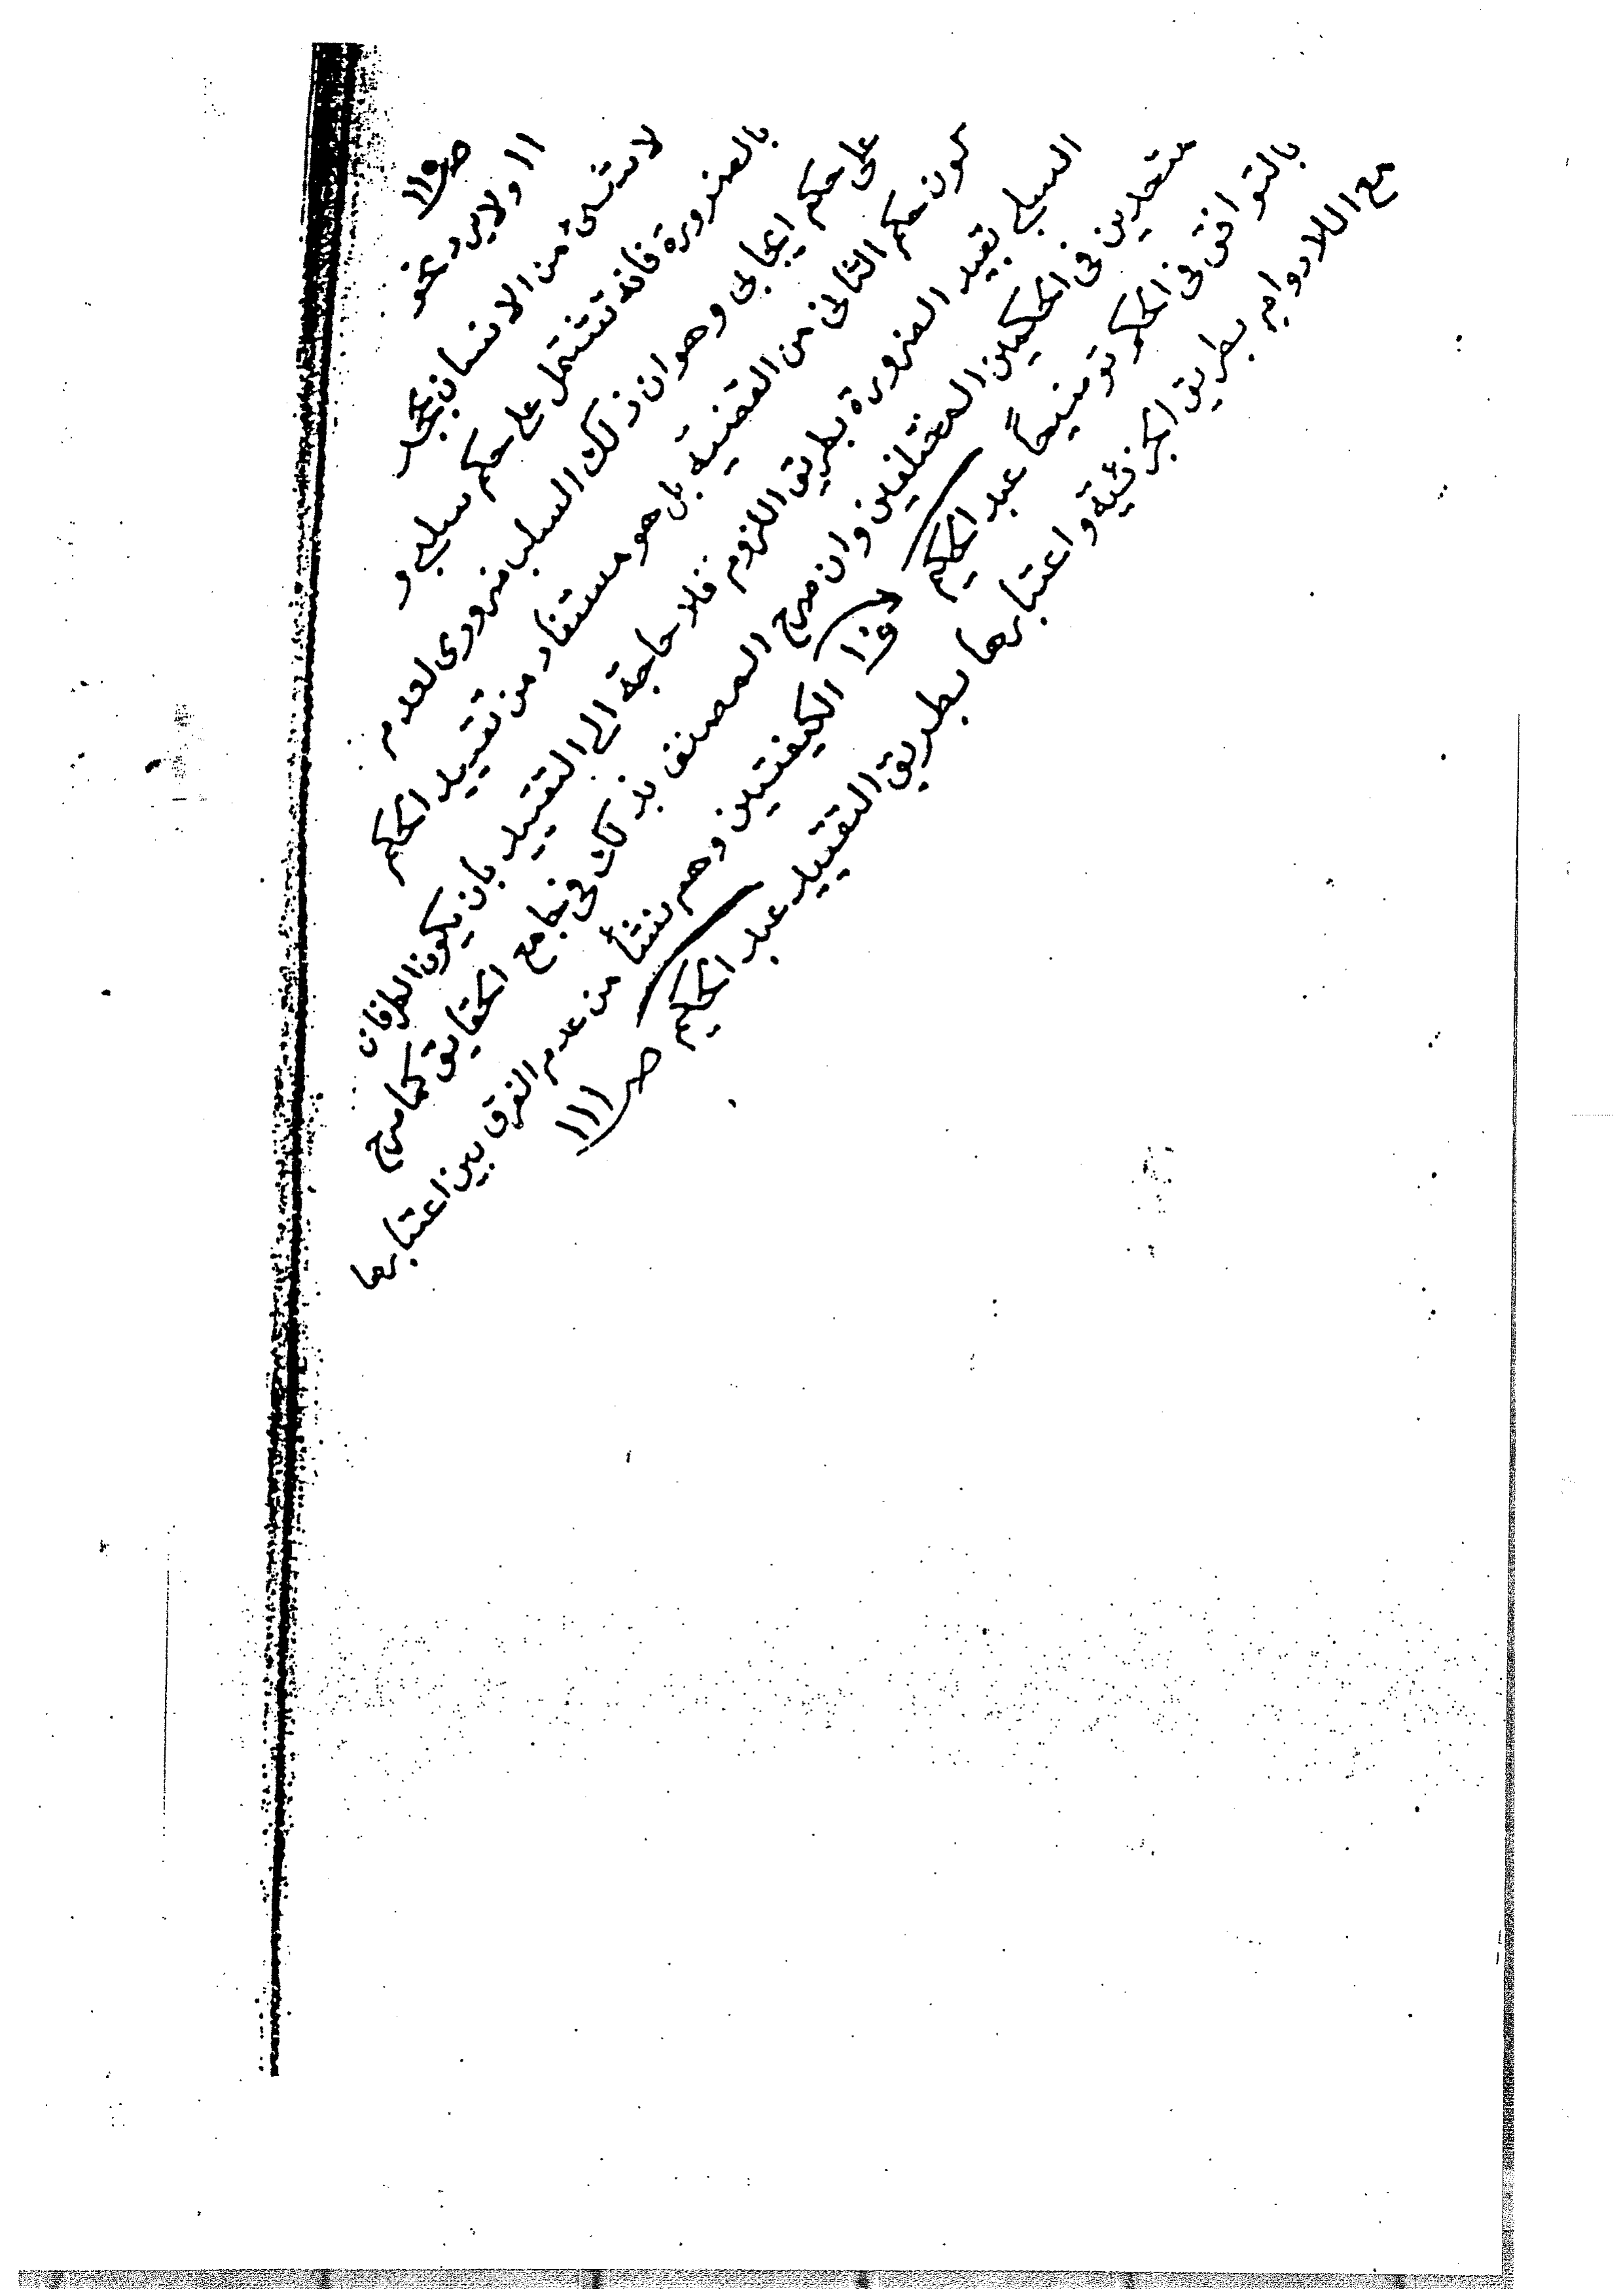 صـ ١١١
١١ ولا يرد نحو
لا شئ من الانسان بحجر
بالضرورة فانه تشتمل على حكم سلبى و
على حكم ايجابى وهو ان ذلك السلب ضرورى لعدم
كون حكم الثانى من القضية بل هو مستفاد من تقييد الحكم
السلبى بقيد الضرورة بطريق اللزوم فلا حاجة الى التقييد بان يكون الطرفان
متحدين فى الحكمين المختلفين وان صرح المصنف بذلك فى جامع الحقايق كما صرح
بالتوافق فى الحكم توضيحاً عبد الحكيم
الكيفيتين وهم ينشأ من عدم الفرق بين اعتبارها
مع اللادوام بطريق الجزئية واعتبارها بطريق التقييد عبد الحكيم
صـ ١١١